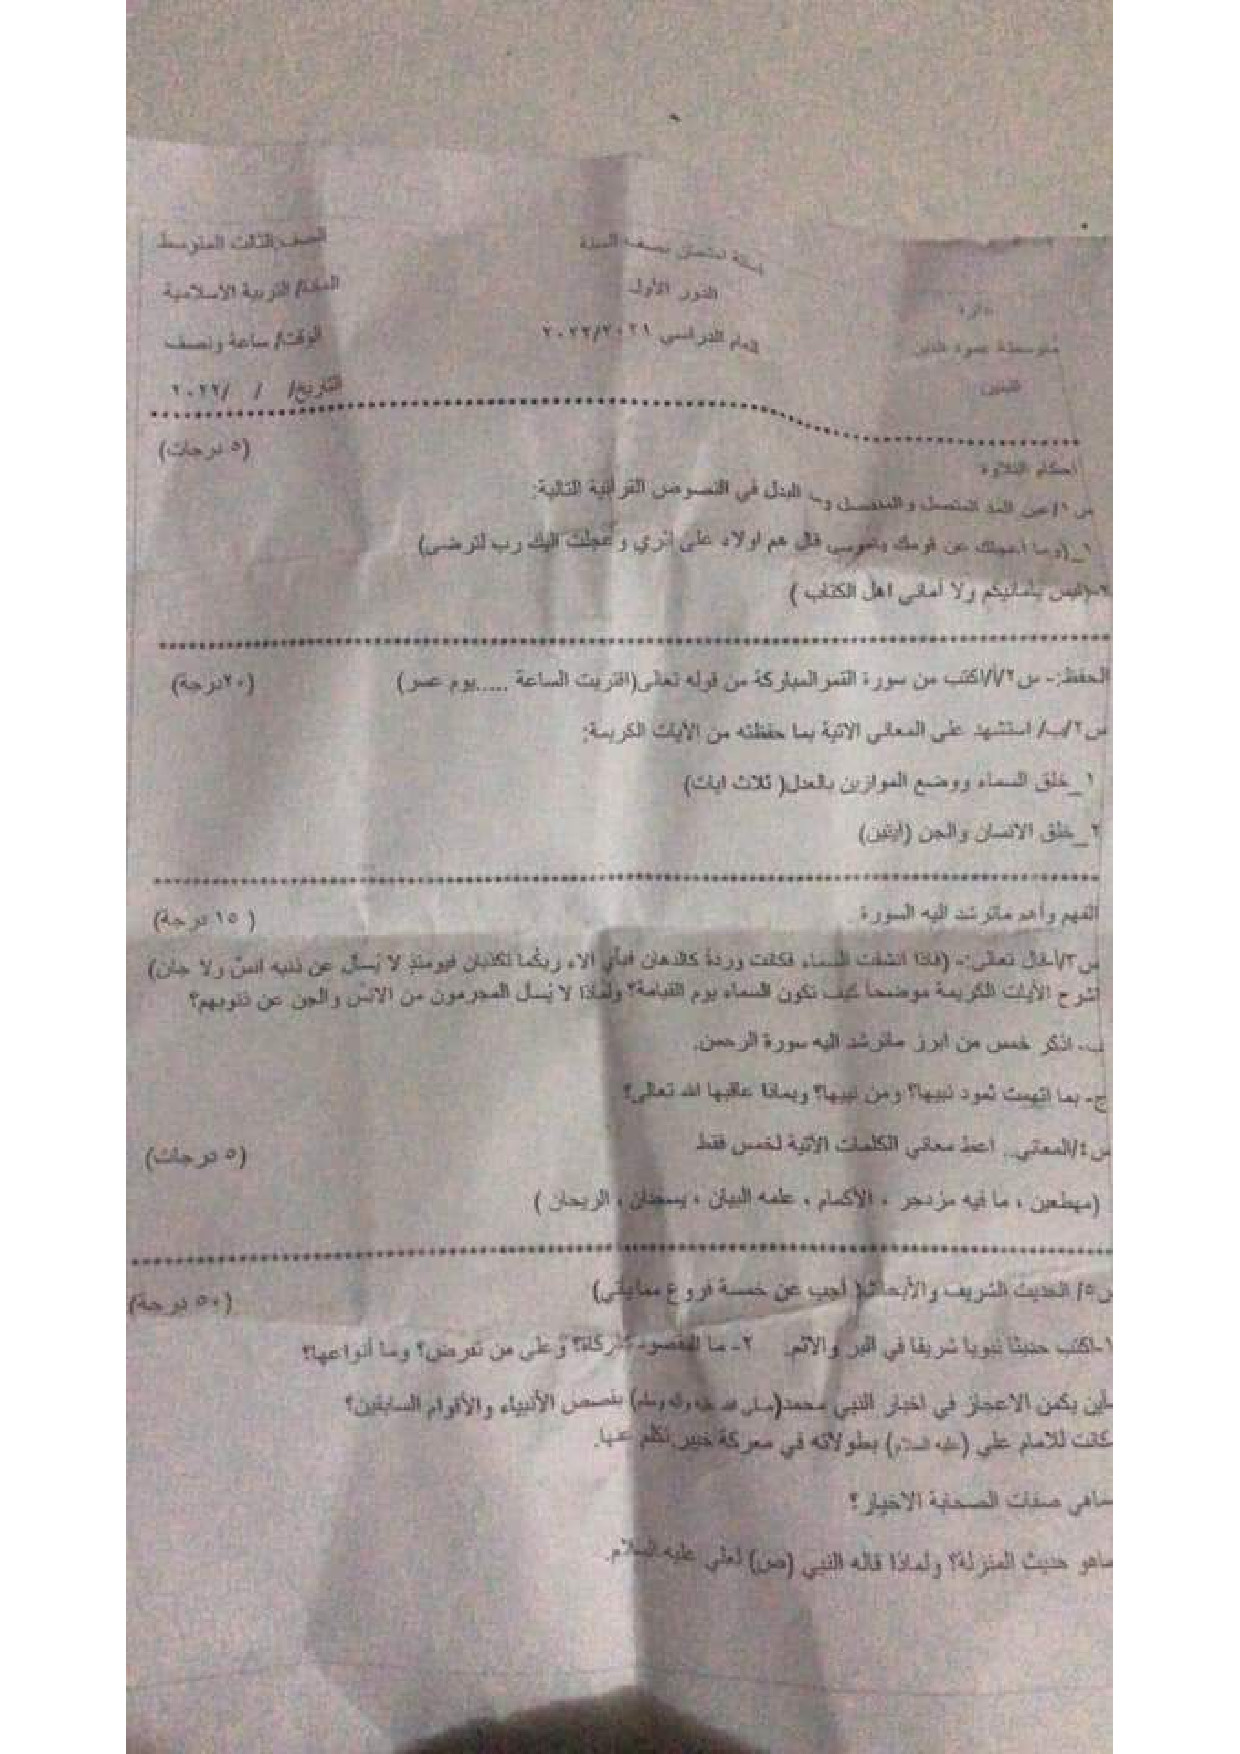 أسئلة امتحان نصف السنة
الدور الأول
العام الدراسي ٢٠٢٢/٢٠٢١
الصف الثالث المتوسط
المادة/ التربية الاسلامية
الوقت/ ساعة ونصف
التاريخ/ / /٢٠٢٢
متوسطة عمود الدين
للبنين
احكام التلاوة (٥ درجات)
س١/عين المد المتصل والمنفصل و البدل في النصوص القرآنية التالية:
١_(وما اعجلك عن قومك ياموسى قال هم اولاء على اثري وعجلت اليك رب لترضى)
٢-(ليس بأمانيكم ولا أماني اهل الكتاب )
الحفظ:- س٢/أ/اكتب من سورة القمر المباركة من قوله تعالى(اقتربت الساعة .....يوم عسر) (٢٠درجة)
س٢/ب/ استشهد على المعاني الاتية بما حفظته من الآيات الكريمة:
١_خلق السماء ووضع الموازين بالعدل( ثلاث ايات)
٢_خلق الانسان والجن (آيتين)
الفهم وأهم ماترشد اليه السورة (١٥ درجة)
س٣/أ-قال تعالى:- (فاذا انشقت السماء فكانت وردة كالدهان فبأي آلاء ربكما تكذبان فيومئذٍ لا يُسأل عن ذنبه انسٌ ولا جان)
اشرح الآيات الكريمة موضحاً كيف تكون السماء يوم القيامة؟ ولماذا لا يُسأل المجرمون من الانس والجن عن ذنوبهم؟
ب- اذكر خمس من ابرز ماترشد اليه سورة الرحمن.
ج- بما اتهمت ثمود نبيها؟ ومن نبيها؟ وبماذا عاقبها الله تعالى؟
س٤/المعاني.. اعط معاني الكلمات الآتية لخمس فقط (٥ درجات)
(مهطعين ، ما فيه مزدجر ، الأكمام ، علمه البيان ، يسجدان ، الريحان )
س٥/ الحديث الشريف والأبحاث( أجب عن خمسة فروع ممايأتي) (٥٠ درجة)
١-اكتب حديثا نبويا شريفا في البر والاثم. ٢- ما المقصود بالزكاة؟ وعلى من تفرض؟ وما أنواعها؟
أين يكمن الاعجاز في اخبار النبي محمد(صلى الله عليه وآله وسلم) بقصص الأنبياء والأقوام السابقين؟
كانت للامام علي (عليه السلام) بطولاته في معركة خيبر.تكلم عنها.
ماهي صفات الصحابة الاخيار؟
ماهو حديث المنزلة؟ ولماذا قاله النبي (ص) لعلي عليه السلام.